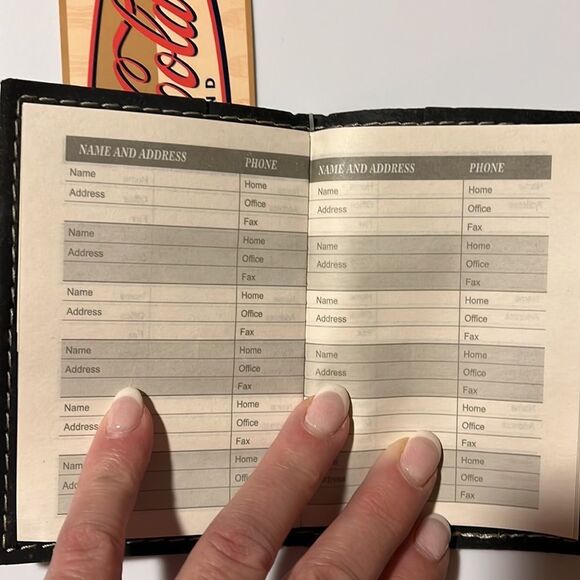 Cola
ND
NAME AND ADDRESS PHONE
Name Home
Address Office
Fax
Name Home
Address Office
Fax
Name Home
Address Office
Fax
Name Home
Address Office
Fax
Name Home
Address Office
Fax
Name Home
Office
NAME AND ADDRESS PHONE
Name Home
Address Office
Fax
Name Home
Address Office
Fax
Name Home
Address Office
Fax
Name Home
Address Office
Fax
Home
Office
Fax
Home
Office
Fax